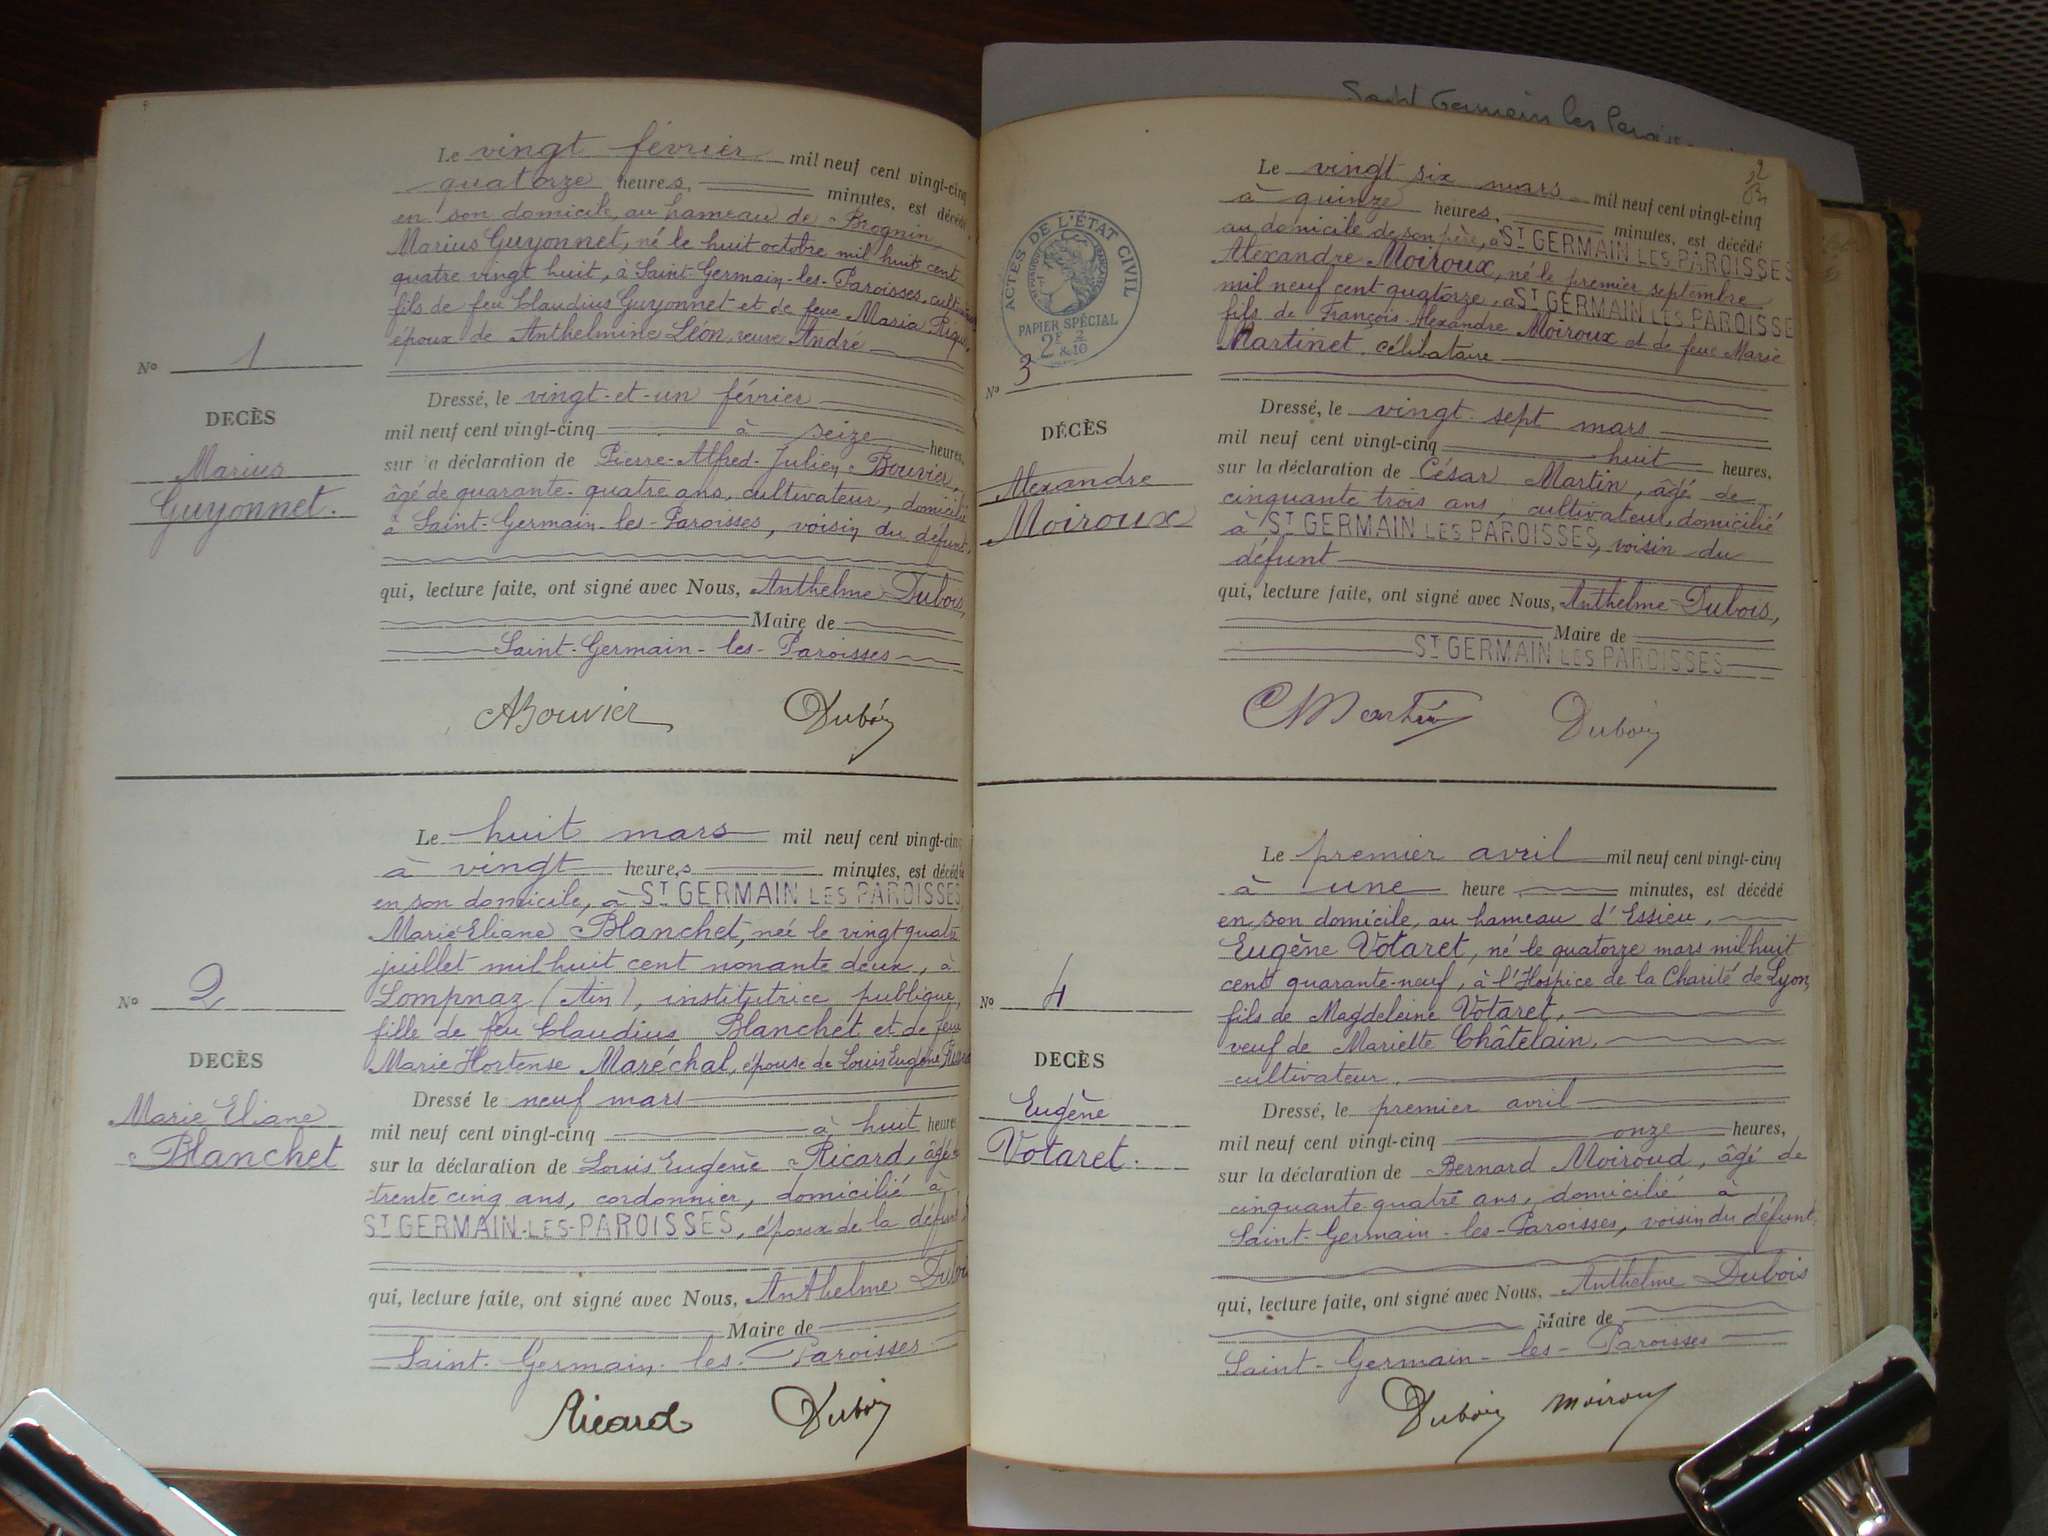 Le vingt février mil neuf cent vingt-cinq
quatorze heures, minutes, est décédé
en son domicile, au hameau de Brognin,
Marius Guyonnet, né le huit octobre mil huit cent
quatre vingt huit, à Saint-Germain-les-Paroisses,
fils de feu Claudius Guyonnet et de feue Maria
époux de Anthelmine Léon, veuve André
No 1
DECÈS
Marius
Guyonnet.
Dressé, le vingt-et-un février
mil neuf cent vingt-cinq à seize heures,
sur la déclaration de Pierre-Alfred-Julien Bouvier,
âgé de quarante-quatre ans, cultivateur, domicilié
à Saint-Germain-les-Paroisses, voisin du défunt,
qui, lecture faite, ont signé avec Nous, Anthelme Dubois,
Maire de
Saint-Germain-les-Paroisses
ABouvier Dubois
Le huit mars mil neuf cent vingt-cinq
à vingt heures minutes, est décédé
en son domicile, à ST GERMAIN LES PAROISSES
Marie Eliane Blanchet, née le vingt quatre
juillet mil huit cent nonante deux, à
Lompnaz (Ain), institutrice publique,
fille de feu Claudius Blanchet et de feue
Marie Hortense Maréchal, épouse de Louis Eugène
No 2
DECÈS
Marie Eliane
Blanchet
Dressé le neuf mars
mil neuf cent vingt-cinq à huit heures
sur la déclaration de Louis Eugène Ricard, âgé de
trente cinq ans, cordonnier, domicilié à
ST GERMAIN-LES-PAROISSES, époux de la défunte,
qui, lecture faite, ont signé avec Nous, Anthelme Dubois
Maire de
Saint-Germain-les-Paroisses
Ricard Dubois
Saint Germain les
2
Le vingt six mars mil neuf cent vingt-cinq
à quinze heures, minutes, est décédé
au domicile de son père, à ST GERMAIN LES PAROISSES
Alexandre Moiroux, né le premier septembre
mil neuf cent quatorze, à ST GERMAIN LES PAROISSE
fils de François Alexandre Moiroux et de feue Marie
Martinet, célibataire
ACTES DE L'ÉTAT CIVIL
PAPIER SPÉCIAL
2F
No 3
DÉCÈS
Alexandre
Moiroux
Dressé, le vingt sept mars
mil neuf cent vingt-cinq huit heures,
sur la déclaration de César Martin, âgé de
cinquante trois ans, cultivateur, domicilié
à ST GERMAIN LES PAROISSES, voisin du
défunt
qui, lecture faite, ont signé avec Nous, Anthelme Dubois,
Maire de
ST GERMAIN LES PAROISSES
CMartin Dubois
Le premier avril mil neuf cent vingt-cinq
à une heure minutes, est décédé
en son domicile, au hameau d'Essieu,
Eugène Votaret, né le quatorze mars mil huit
cent quarante-neuf, à l'Hospice de la Charité de Lyon,
fils de Magdeleine Votaret,
veuf de Mariette Châtelain,
cultivateur.
No 4
DECÈS
Eugène
Votaret.
Dressé, le premier avril
mil neuf cent vingt-cinq onze heures,
sur la déclaration de Bernard Moiroud, âgé de
cinquante quatre ans, domicilié à
Saint-Germain-les-Paroisses, voisin du défunt
qui, lecture faite, ont signé avec Nous, Anthelme Dubois
Maire de
Saint-Germain-les-Paroisses
Dubois Moiroud